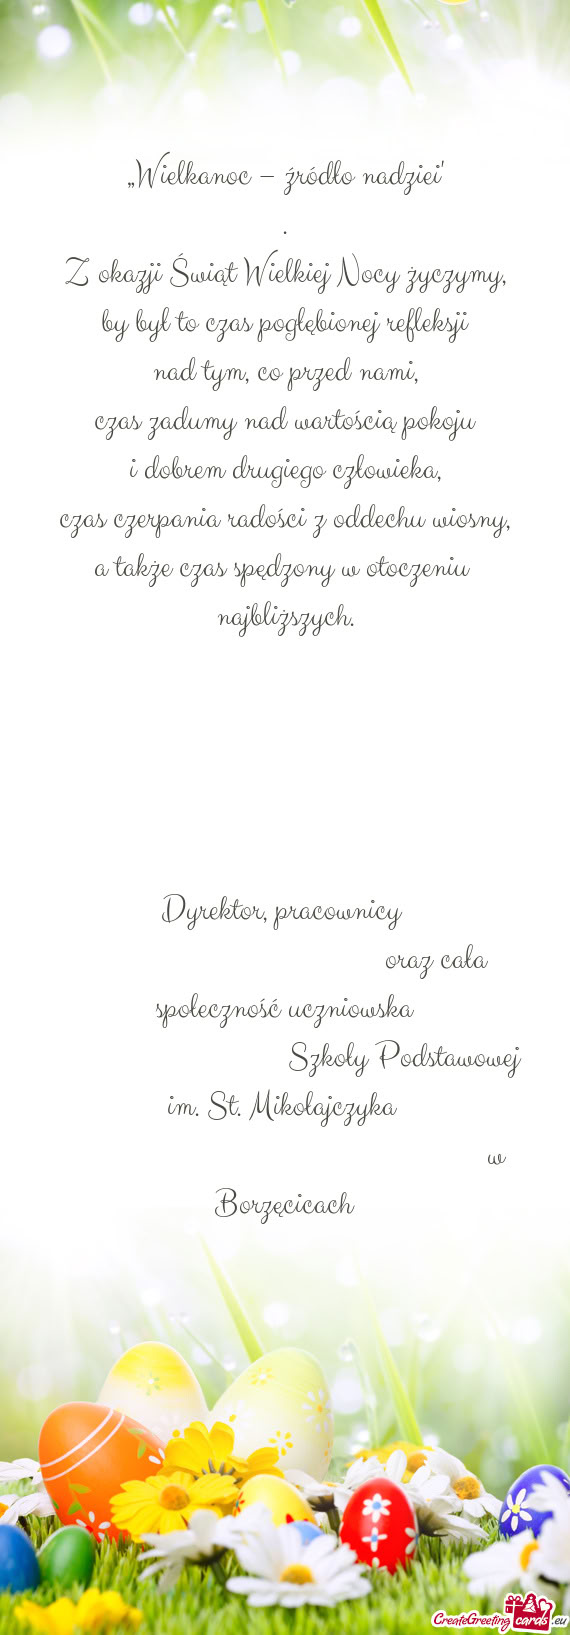 „Wielkanoc – źródło nadziei"
.
Z okazji Świąt Wielkiej Nocy życzymy,
by był to czas pogłębionej refleksji
nad tym, co przed nami,
czas zadumy nad wartością pokoju
i dobrem drugiego człowieka,
czas czerpania radości z oddechu wiosny,
a także czas spędzony w otoczeniu
najbliższych.
Dyrektor, pracownicy
oraz cała
społeczność uczniowska
Szkoły Podstawowej
im. St. Mikołajczyka
w
Borzęcicach
CreateGreeting cards.eu